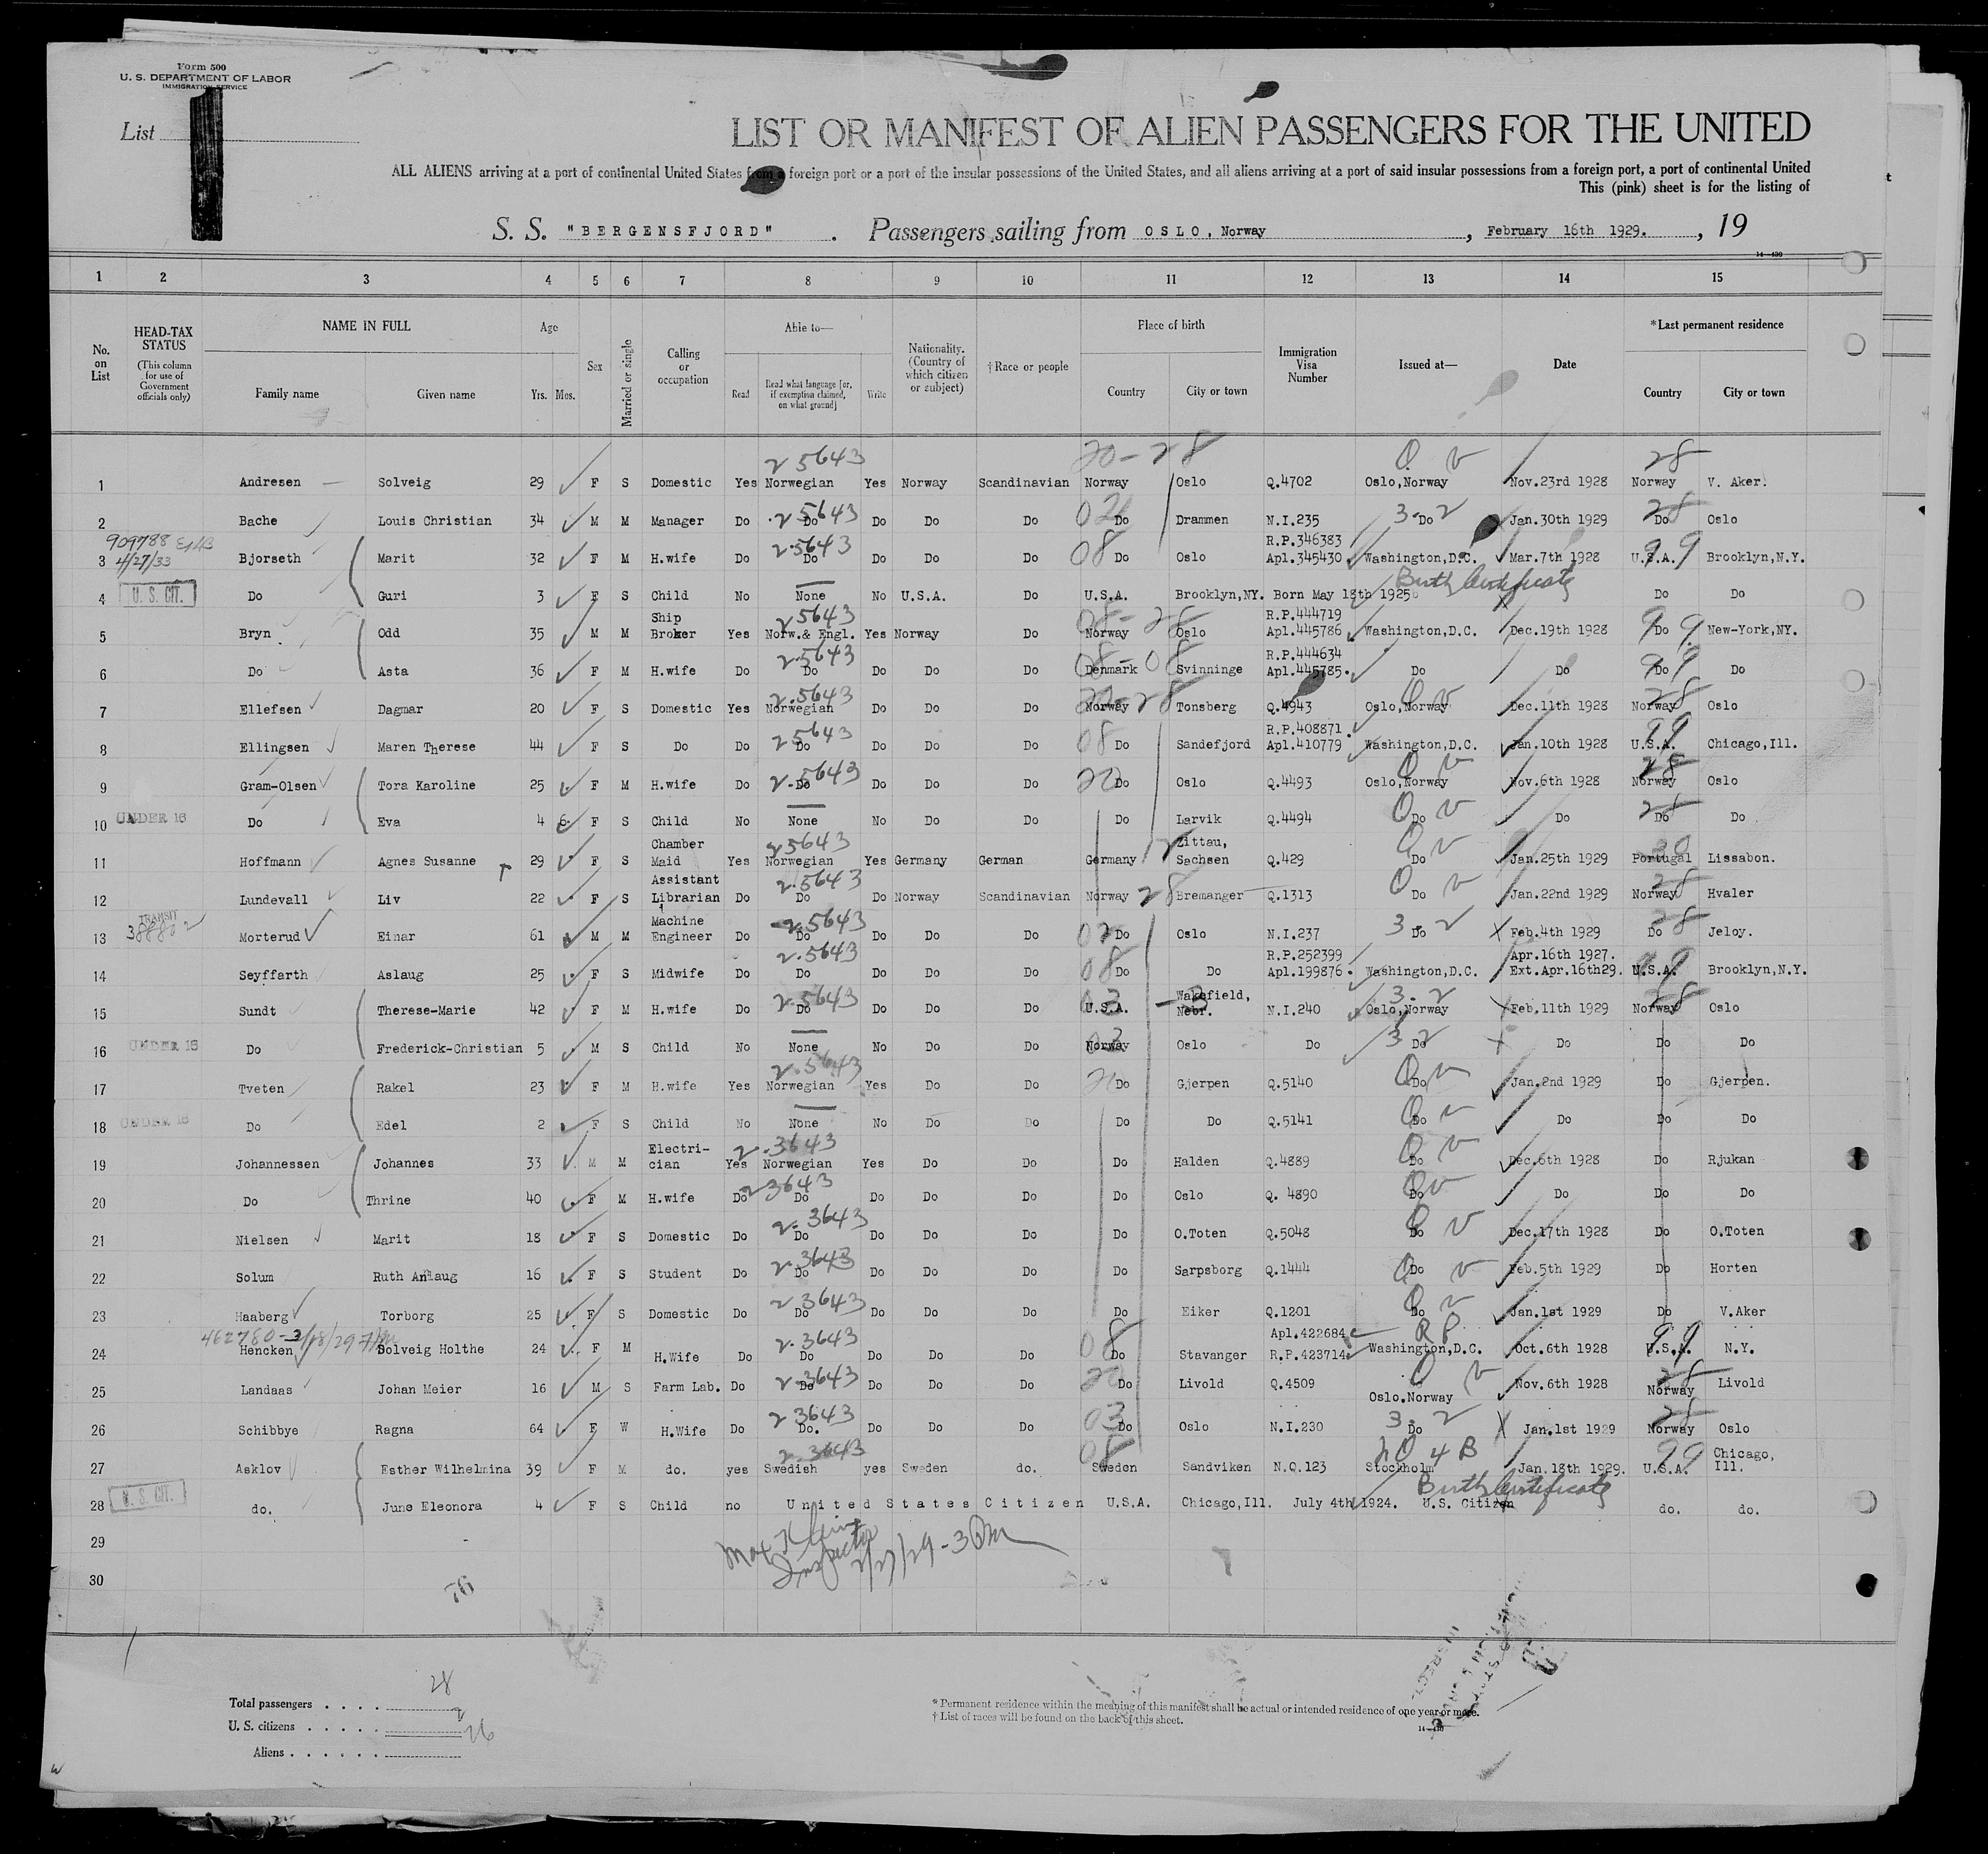 Form 500
U. S. DEPARTMENT OF LABOR
IMMIGRATION SERVICE
List
LIST OR MANIFEST OF ALIEN PASSENGERS FOR THE UNITED
ALL ALIENS arriving at a port of continental United States from a foreign port or a port of the insular possessions of the United States, and all aliens arriving at a port of said insular possessions from a foreign port, a port of continental United
This (pink) sheet is for the listing of
S. S. "BERGENSFJORD" . Passengers sailing from OSLO, Norway , February 16th 1929. , 19
14-430
1 2 3 4 5 6 7 8 9 10 11 12 13 14 15
No. on List
HEAD-TAX STATUS (This column for use of Government officials only)
NAME IN FULL Family name Given name
Age Yrs. Mos.
Sex
Married or single
Calling or occupation
Able to— Read Read what language [or, if exemption claimed, on what ground] Write
Nationality. (Country of which citizen or subject)
†Race or people
Place of birth Country City or town
Immigration Visa Number
Issued at—
Date
*Last permanent residence Country City or town
25643 20-28 O v 28
1 Andresen Solveig 29 F S Domestic Yes Norwegian Yes Norway Scandinavian Norway Oslo Q.4702 Oslo,Norway Nov.23rd 1928 Norway V. Aker.
2 5643 3-2 28
2 Bache Louis Christian 34 M M Manager Do Do Do Do Do Do Drammen N.I.235 Do Jan.30th 1929 Do Oslo
909788 2.5643 08 R.P.346383 99
3 4/27/33 Bjorseth Marit 32 F M H.wife Do Do Do Do Do Do Oslo Apl.345430 Washington,D.C. Mar.7th 1928 U.S.A. Brooklyn,N.Y.
Birth Certificate
4 U. S. CIT. Do Guri 3 F S Child No None No U.S.A. Do U.S.A. Brooklyn,NY. Born May 18th 1925 Do Do
Ship 25643 08-28 R.P.444719 99
5 Bryn Odd 35 M M Broker Yes Norw.& Engl. Yes Norway Do Norway Oslo Apl.445786 Washington,D.C. Dec.19th 1928 Do New-York,NY.
2.5643 08-08 R.P.444634 99
6 Do Asta 36 F M H.wife Do Do Do Do Do Denmark Svinninge Apl.445785. Do Do Do Do
2.5643 20-28 O v 28
7 Ellefsen Dagmar 20 F S Domestic Yes Norwegian Do Do Do Norway Tonsberg Q.4943 Oslo,Norway Dec.11th 1928 Norway Oslo
25643 08 R.P.408871 99
8 Ellingsen Maren Therese 44 F S Do Do Do Do Do Do Do Sandefjord Apl.410779 Washington,D.C. Jan.10th 1928 U.S.A. Chicago,Ill.
2.5643 20 O v 28
9 Gram-Olsen Tora Karoline 25 F M H.wife Do Do Do Do Do Do Oslo Q.4493 Oslo,Norway Nov.6th 1928 Norway Oslo
O v 28
10 UNDER 16 Do Eva 4 6 F S Child No None No Do Do Do Larvik Q.4494 Do Do Do Do
Chamber 25643 Zittau, O v
11 Hoffmann Agnes Susanne 29 F S Maid Yes Norwegian Yes Germany German Germany Sachsen Q.429 Do Jan.25th 1929 Portugal Lissabon.
Assistant 2.5643 28 O v 28
12 Lundevall Liv 22 F S Librarian Do Do Do Norway Scandinavian Norway Bremanger Q.1313 Do Jan.22nd 1929 Norway Hvaler
TRANSIT Machine 2.5643 02 3.2 28
13 Morterud Einar 61 M M Engineer Do Do Do Do Do Do Oslo N.I.237 Do Feb.4th 1929 Do Jeloy.
2.5643 08 R.P.252399 Apr.16th 1927. 99
14 Seyffarth Aslaug 25 F S Midwife Do Do Do Do Do Do Do Apl.199876. Washington,D.C. Ext.Apr.16th29. U.S.A. Brooklyn,N.Y.
2.5643 03-3 Wakefield, 3.2 28
15 Sundt Therese-Marie 42 F M H.wife Do Do Do Do Do U.S.A. Nebr. N.I.240 Oslo,Norway Feb.11th 1929 Norway Oslo
03 3 2
16 UNDER 16 Do Frederick-Christian 5 M S Child No None No Do Do Norway Oslo Do Do Do Do Do
2.5643 20 O v
17 Tveten Rakel 23 F M H.wife Yes Norwegian Yes Do Do Do Gjerpen Q.5140 Do Jan.2nd 1929 Do Gjerpen.
O v
18 UNDER 16 Do Edel 2 F S Child No None No Do Do Do Do Q.5141 Do Do Do Do
Electri- 2.3643 O v
19 Johannessen Johannes 33 M M cian Yes Norwegian Yes Do Do Do Halden Q.4889 Do Dec.6th 1928 Do Rjukan
23643 O v
20 Do Thrine 40 F M H.wife Do Do Do Do Do Do Oslo Q. 4890 Do Do Do Do
2.3643 O v
21 Nielsen Marit 18 F S Domestic Do Do Do Do Do Do O.Toten Q.5048 Do Dec.17th 1928 Do O.Toten
2.3643 O v
22 Solum Ruth 16 F S Student Do Do Do Do Do Do Sarpsborg Q.1444 Do Feb.5th 1929 Do Horten
2 3643 O v
23 Haaberg Torborg 25 F S Domestic Do Do Do Do Do Do Eiker Q.1201 Do Jan.1st 1929 Do V.Aker
462780- 2.3643 08 Apl.422684 R P 99
24 Hencken Solveig Holthe 24 F M H.Wife Do Do Do Do Do Do Stavanger R.P.423714. Washington,D.C. Oct.6th 1928 U.S.A. N.Y.
2-3643 20 O v 28
25 Landaas Johan Meier 16 M S Farm Lab. Do Do Do Do Do Do Livold Q.4509 Oslo.Norway Nov.6th 1928 Norway Livold
2 3643 03 3.2 28
26 Schibbye Ragna 64 F W H.Wife Do Do. Do Do Do Do Oslo N.I.230 Do Jan.1st 1929 Norway Oslo
2.3643 08 4 B 99 Chicago,
27 Asklov Esther Wilhelmina 39 F M do. yes Swedish yes Sweden do. Sweden Sandviken N.Q.123 Stockholm Jan.18th 1929. U.S.A. Ill.
Birth Certificate
28 U. S. CIT. do. June Eleonora 4 F S Child no United States Citizen U.S.A. Chicago,Ill. July 4th 1924. U.S. Citizen do. do.
29
30
Max Klein
Inspector
2/27/29-3 PM
76
Total passengers . . . . 28
U. S. citizens . . . . . 2
Aliens . . . . . . 26
* Permanent residence within the meaning of this manifest shall be actual or intended residence of one year or more.
† List of races will be found on the back of this sheet.
14-430